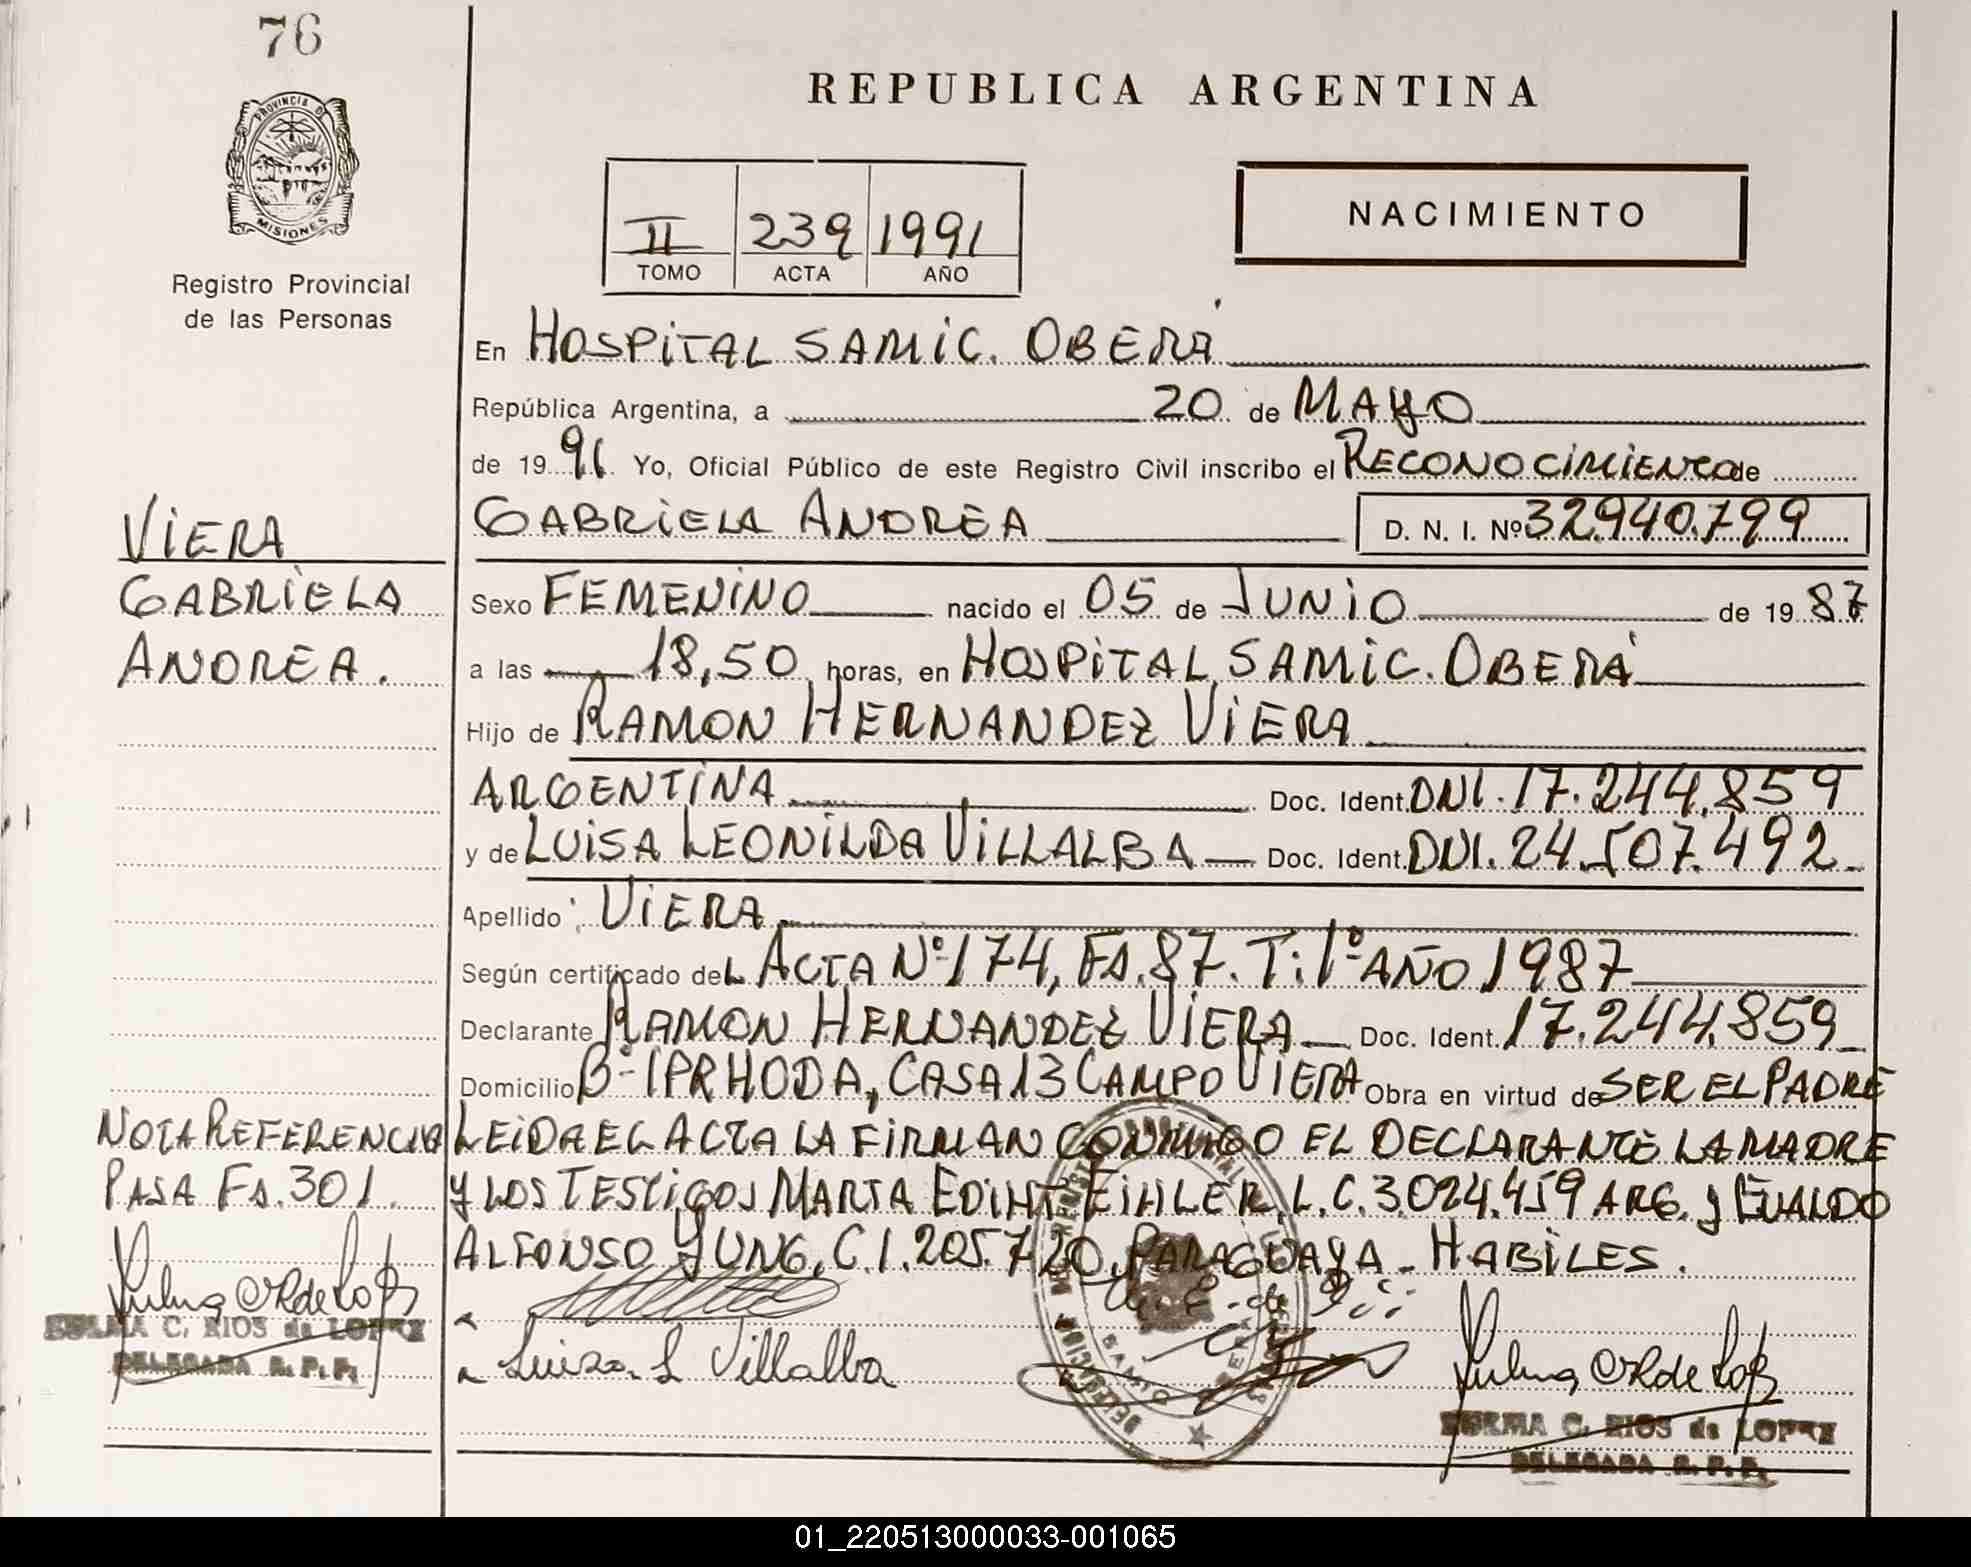 76
REPUBLICA ARGENTINA
PROVINCIA DE
MISIONES
Registro Provincial
de las Personas
II 239 1991
TOMO ACTA AÑO
NACIMIENTO
En HOSPITAL SAMIC. OBERÁ
República Argentina, a 20 de MAYO
de 1991. Yo, Oficial Público de este Registro Civil inscribo el RECONOCIMIENTO de
GABRIELA ANDREA D. N. I. Nº 32.940.799
VIERA
GABRIELA
ANDREA.
Sexo FEMENINO nacido el 05 de JUNIO de 1987
a las 18,50 horas, en HOSPITAL SAMIC. OBERÁ
Hijo de RAMON HERNANDEZ VIERA
ARGENTINA Doc. Ident. DNI. 17.244.859
y de LUISA LEONILDA VILLALBA Doc. Ident. DNI. 24.507.492
Apellido: VIERA
Según certificado del ACTA Nº 174, Fs. 87. T: 1º AÑO 1987
Declarante RAMON HERNANDEZ VIERA Doc. Ident. 17.244.859
Domicilio Bº IPRHODA, CASA 13 CAMPO VIERA Obra en virtud de SER EL PADRE
LEIDA EL ACTA LA FIRMAN CONMIGO EL DECLARANTE LA MADRE
Y LOS TESTIGOS MARTA EDIHT EIHLER, L.C. 3.024.459 ARG. y EUALDO
ALFONSO YUNG, C.I. 205.720, PARAGUAYA - HABILES.
NOTA REFERENCIA
PASA Fs. 301.
C. RIOS de LOPEZ
DELEGADA R. P. P.
Luisa L Villalba
C. RIOS de LOPEZ
DELEGADA R. P. P.
01_220513000033-001065